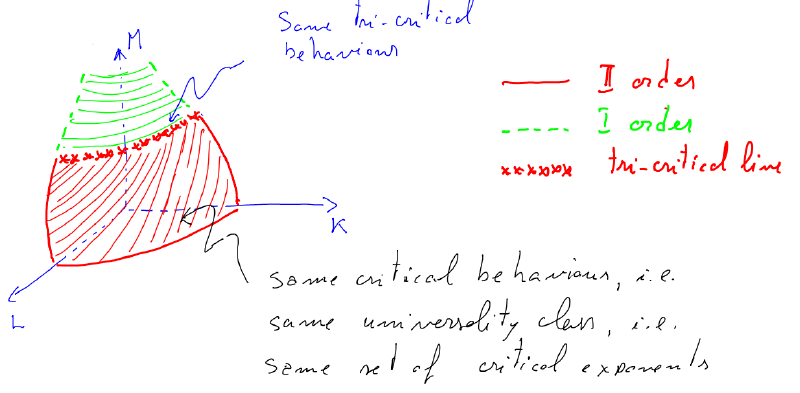 Same tri-critical
behaviour
M
II order
I order
tri-critical line
K
L
same critical behaviour, i.e.
same universality class, i.e.
same set of critical exponents